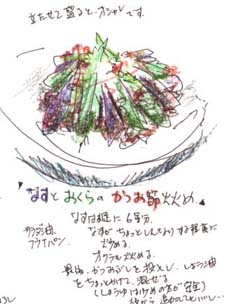 立たせて盛ると、オシャレです。
なすとおくらのかつお節炒め。
なすは縦に6等分。
サラダ油 なすがちょっとしんなりする程度に
フライパン 炒める。
オクラも炒める。
最後、かつおぶしを投入し、しょう油
をちょっとかけて、混ぜる
(しょうゆは少なめの方が